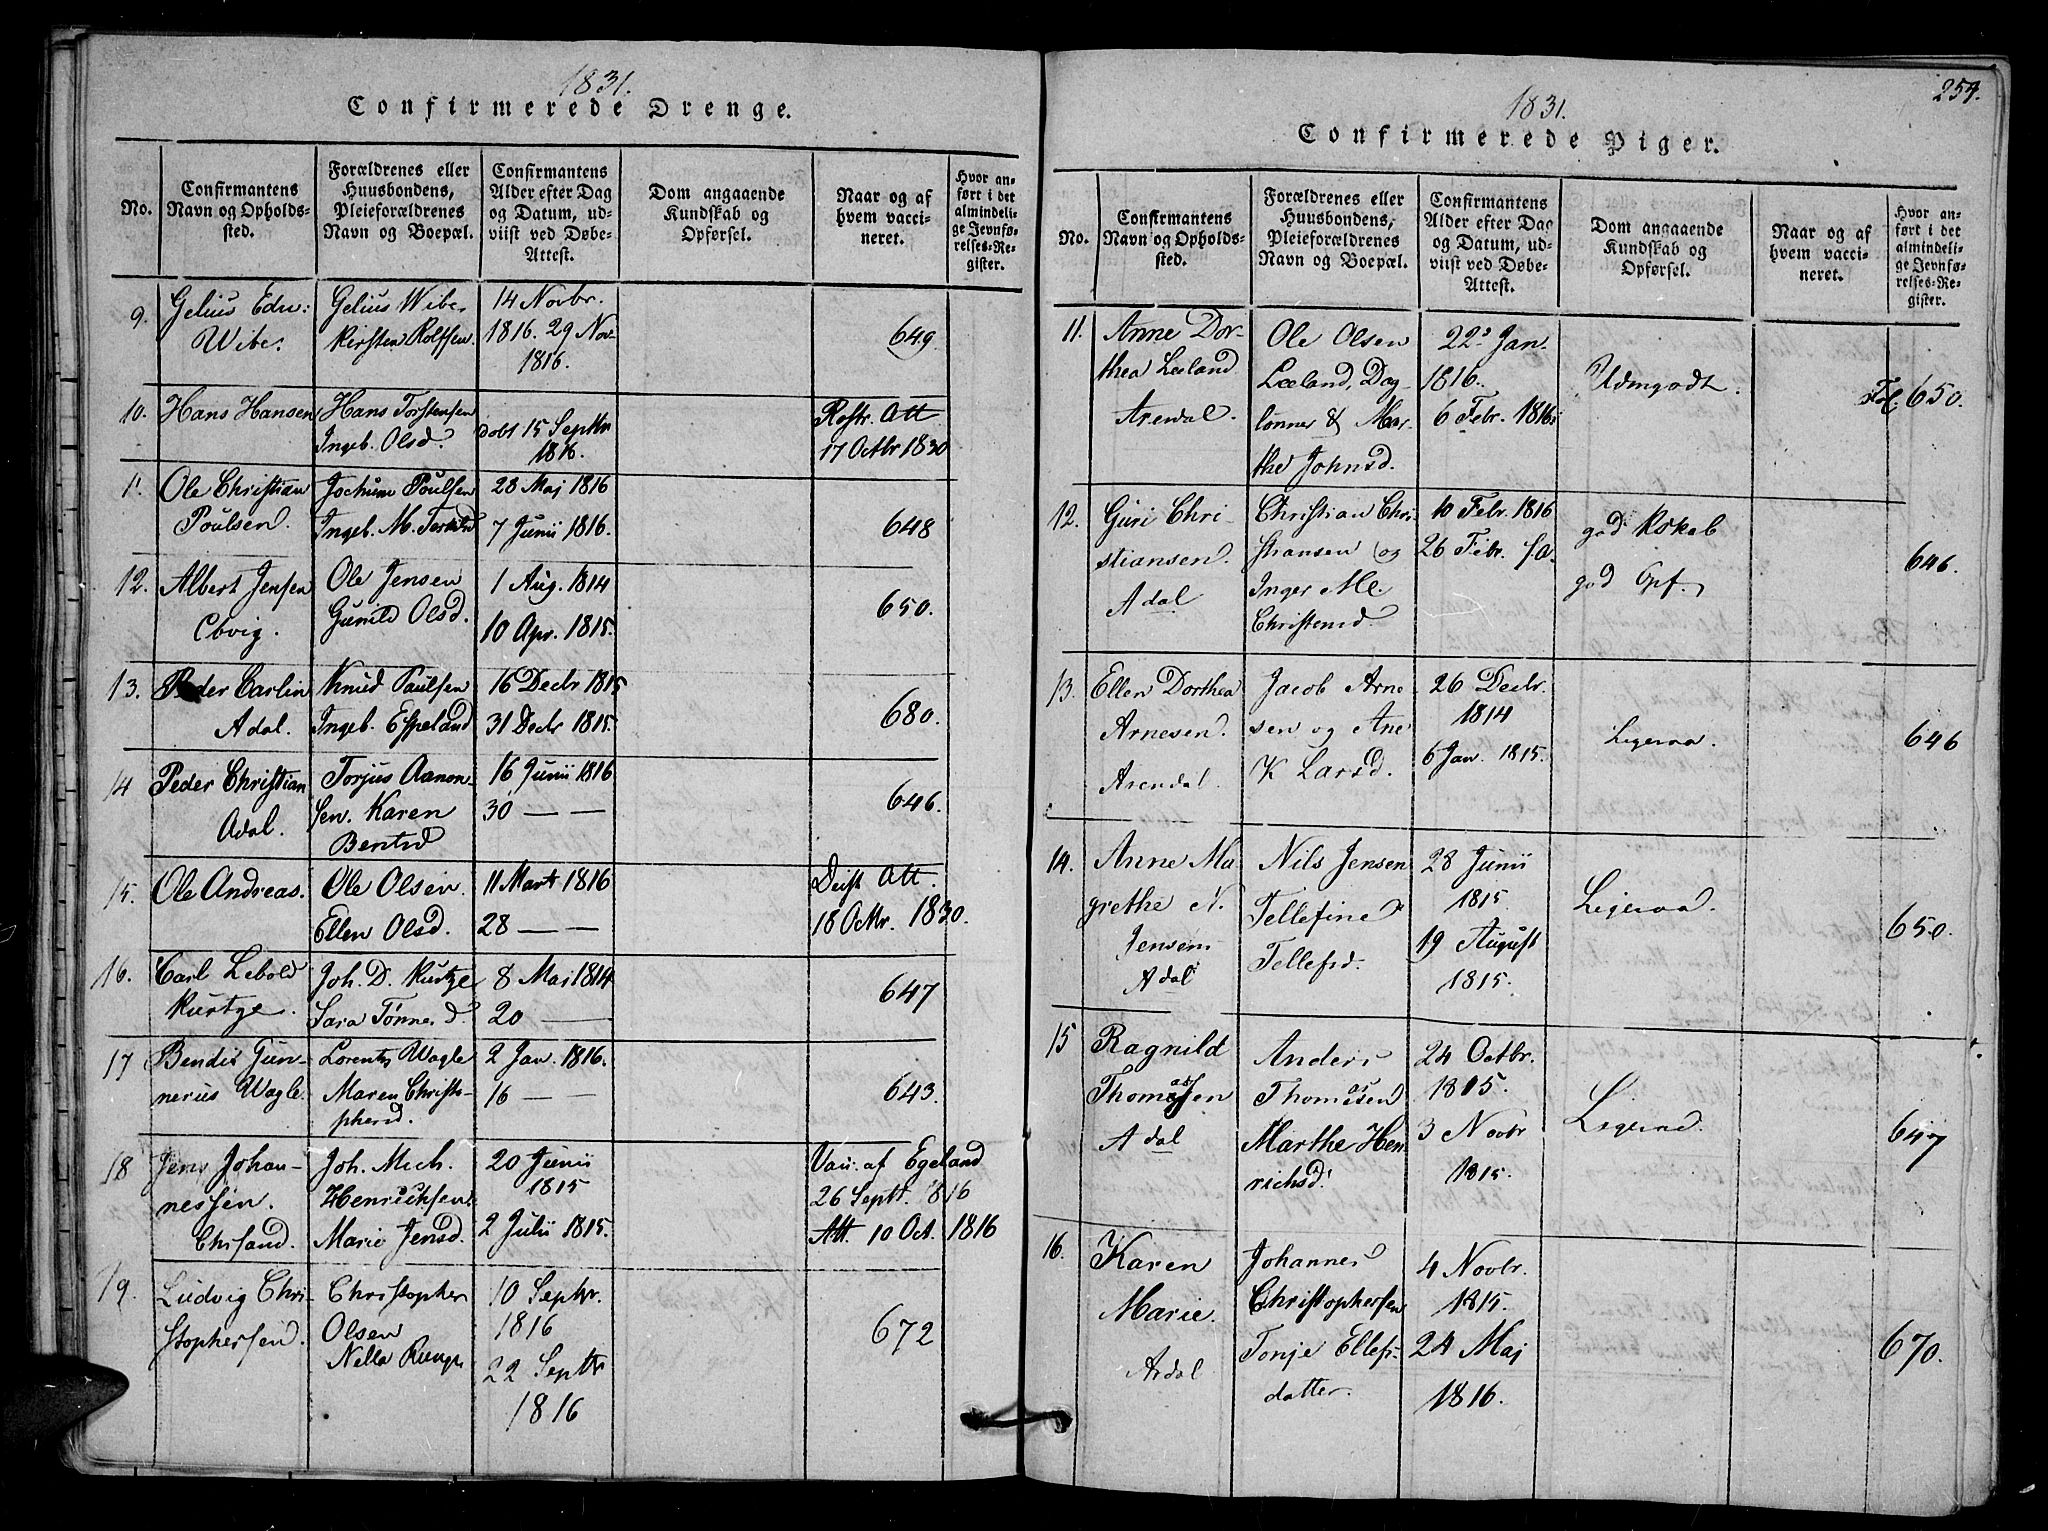 1831.
Confirmerede Drenge.
No.
Confirmantens
Navn og Opholds-
sted.
Forældrenes eller
Huusbondens,
Pleieforældrenes
Navn og Boepæl.
Confirmantens
Alder efter Dag
og Datum, ud-
viist ved Døbe-
Attest.
Dom angaaende
Kundskab og
Opførsel.
Naar og af
hvem vacci-
neret.
Hvor an-
ført i det
almindeli-
ge Jevnfø-
relses-Re-
gister.
9.
Gelius Edv:
Wibe.
Gelius Wibe
Kirsten Rolfsen.
14 Novbr.
1816. 29 Nov.
1816.
649.
10.
Hans Hansen
Hans Torstensen
Ingeb. Olsd.
døbt 15 Septbr
1816.
Att
17 Octbr 1830
11
Ole Christian
Poulsen.
Jochum Poulsen
Ingeb. M.
28 Maj 1816
7 Junii 1816.
648
12.
Albert Jensen
Ole Jensen
Gunild Olsd.
1 Aug. 1814
10 Apr. 1815.
650.
13.
Peder Carlin
Adal.
Knud Paulsen
Ingeb. Espeland
16 Decbr 1815
31 Decbr 1815.
680.
14
Peder Christian
Adal.
Torjus Aanon-
sen. Karen
Bentsd
16 Junii 1816
30 — —
646.
15.
Ole Andreas.
Ole Olsen.
Ellen Olsd.
11 Mart 1816
28 — —
Att.
18 Octbr. 1830.
16.
Carl Lebold
Kurtge.
Joh. D. Kurtge
Sara Tønnesd.
8 Mai 1814
20 —
647
17
Bendix Gun-
nerus Wagle.
Lorents Wagle
Maren Christo-
phersd.
2 Jan. 1816.
16 — —
643.
18
Jens Johan-
nessen.
Chrsand.
Joh. Mich.
Henrichsen
Marie Jensd.
20 Junii
1815
2 Julii 1815.
Vac. af Egeland
26 Septbr. 1816
Att. 10 Oct. 1816
19.
Ludvig Chri-
stophersen.
Christopher
Olsen
Nella Runge
10 Septbr.
1816
22 Septbr
1816
672
254.
1831.
Confirmerede Piger.
No.
Confirmantens
Navn og Opholds-
sted.
Forældrenes eller
Huusbondens,
Pleieforældrenes
Navn og Boepæl.
Confirmantens
Alder efter Dag
og Datum, ud-
viist ved Døbe-
Attest.
Dom angaaende
Kundskab og
Opførsel.
Naar og af
hvem vacci-
neret.
Hvor an-
ført i det
almindeli-
ge Jevnfø-
relses-Re-
gister.
11.
Anne Dor-
thea Leeland
Arendal.
Ole Olsen
Leeland, Dag-
lønner & Mar-
the Johnsd.
22 Jan.
1816.
6 Febr. 1816.
Udmgodt.
Fol. 650.
12.
Guri Chri-
stiansen.
Adal
Christian Chri-
stiansen og
Inger Me.
Christensd.
10 Febr. 1816
26 Febr. s.a.
god Kskab
god Opf.
646.
13.
Ellen Dorthea
Arnesen.
Arendal.
Jacob Arne-
sen og Ane
K Larsd.
26 Decbr.
1814
6 Jan. 1815.
Ligesaa.
646
14.
Anne Ma-
grethe N.
Jensen
Adal
Nils Jensen
Tellefine
Tellefsd.
28 Junii
1815.
19 August
1815.
Ligesaa.
650.
15
Ragnild
Thomassen
Adal
Anders
Thomassen
Marthe Hen-
richsd.
24 Octbr.
1815.
3 Novbr
1815.
Ligesaa.
647
16.
Karen
Marie.
Ardal
Johannes
Christophersen
Tonje Ellefs-
datter.
4 Novbr.
1815.
24 Maj
1816.
670.